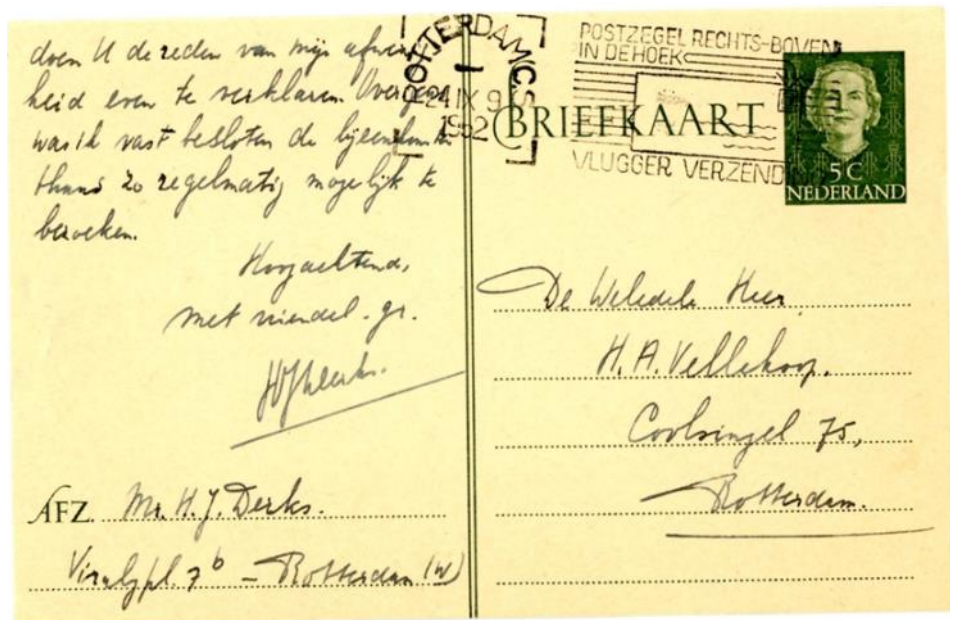 doen U de reden van mijn afwezig-
heid even te verklaren. Overigens
was ik vast besloten de bijeenkomsten
thans zo regelmatig mogelijk te
bezoeken.
Hoogachtend,
met vriendel. gr.
HJDerks.
AFZ. Mr. H. J. Derks.
7b – Rotterdam (W)
ROTTERDAM C.S.
24 IX 9
1952
POSTZEGEL RECHTS-BOVEN
IN DE HOEK
VLUGGER VERZEND
BRIEFKAART
5 C
NEDERLAND
De Weledele Heer
H. A. Vellekoop.
Coolsingel 75,
Rotterdam.